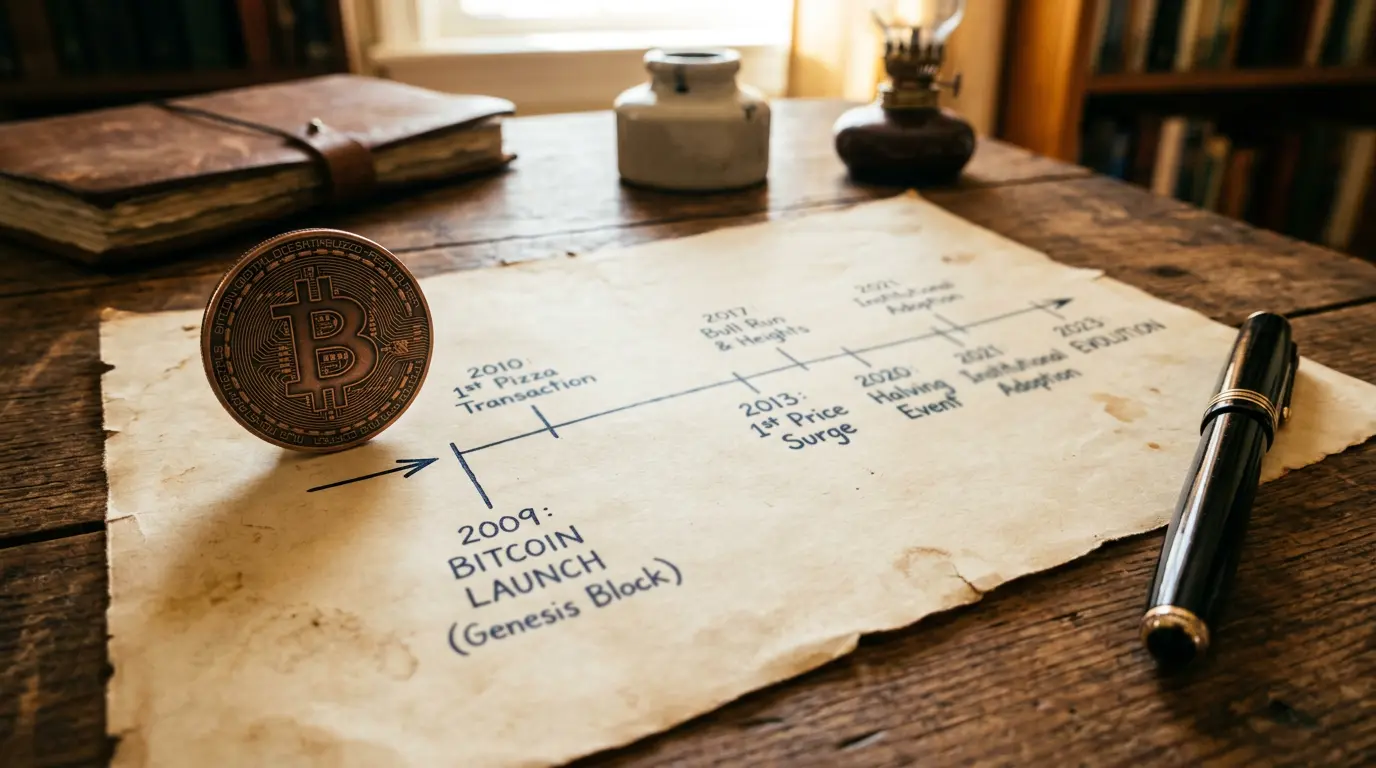 2010:
1st Pizza
Transaction
2017
Bull Run
& Heights
2021
Institutional
Adoption
2009:
BITCOIN
LAUNCH
(Genesis Block)
2013:
1st Price
Surge
2020:
Halving
Event
2021
Institutional
Adoption
2023:
EVOLUTION
BITCOIN